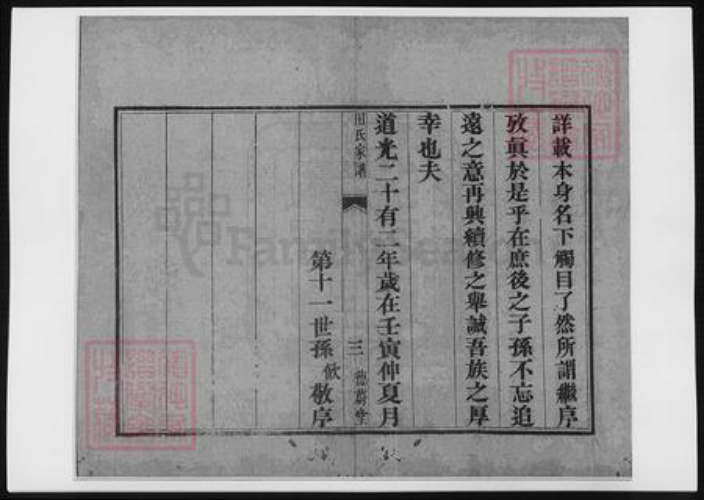 詳載本身名下觸目了然所謂繼序
攷眞於是乎在庶後之子孫不忘追
遠之意再興續修之舉誠吾族之厚
幸也夫
道光二十有二年歲在壬寅仲夏月
田氏家譜
三
第十一世孫 敬序
FamilySearch